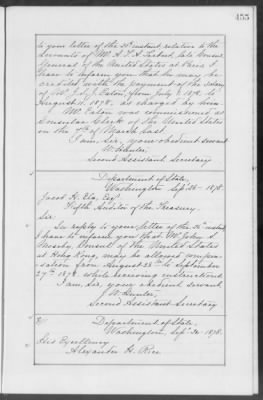 455
to your letter of the 23d instant relative to the
accounts of Mr. A. T. A. Torbert, late Consul
General of the United States at Paris, I
have to inform you that he may be
credited with the payment of the salary
of Mr. J. S. J. Eaton, from July 1, 1878, to
August 11, 1878, as charged by him.
Mr. Eaton was commissioned as
Consular Clerk of the United States
on the 7th of March last.
I am, Sir, your obedient servant
W. Hunter,
Second Assistant Secretary
Department of State,
Washington, Sept. 1878.
Jacob H. Ela, Esq.
Fifth Auditor of the Treasury.
Sir
In reply to your letter of the instant
I have to inform you that Mr. John S.
Mosby, Consul of the United States
at Hong Kong, may be allowed compen-
sation from August 28th to September
27th 1878, while receiving instructions
I am, Sir, your obedient servant,
W. Hunter,
Second Assistant Secretary
Department of State,
Washington, Sept. 1878.
His Excellency
Alexander H. Rice